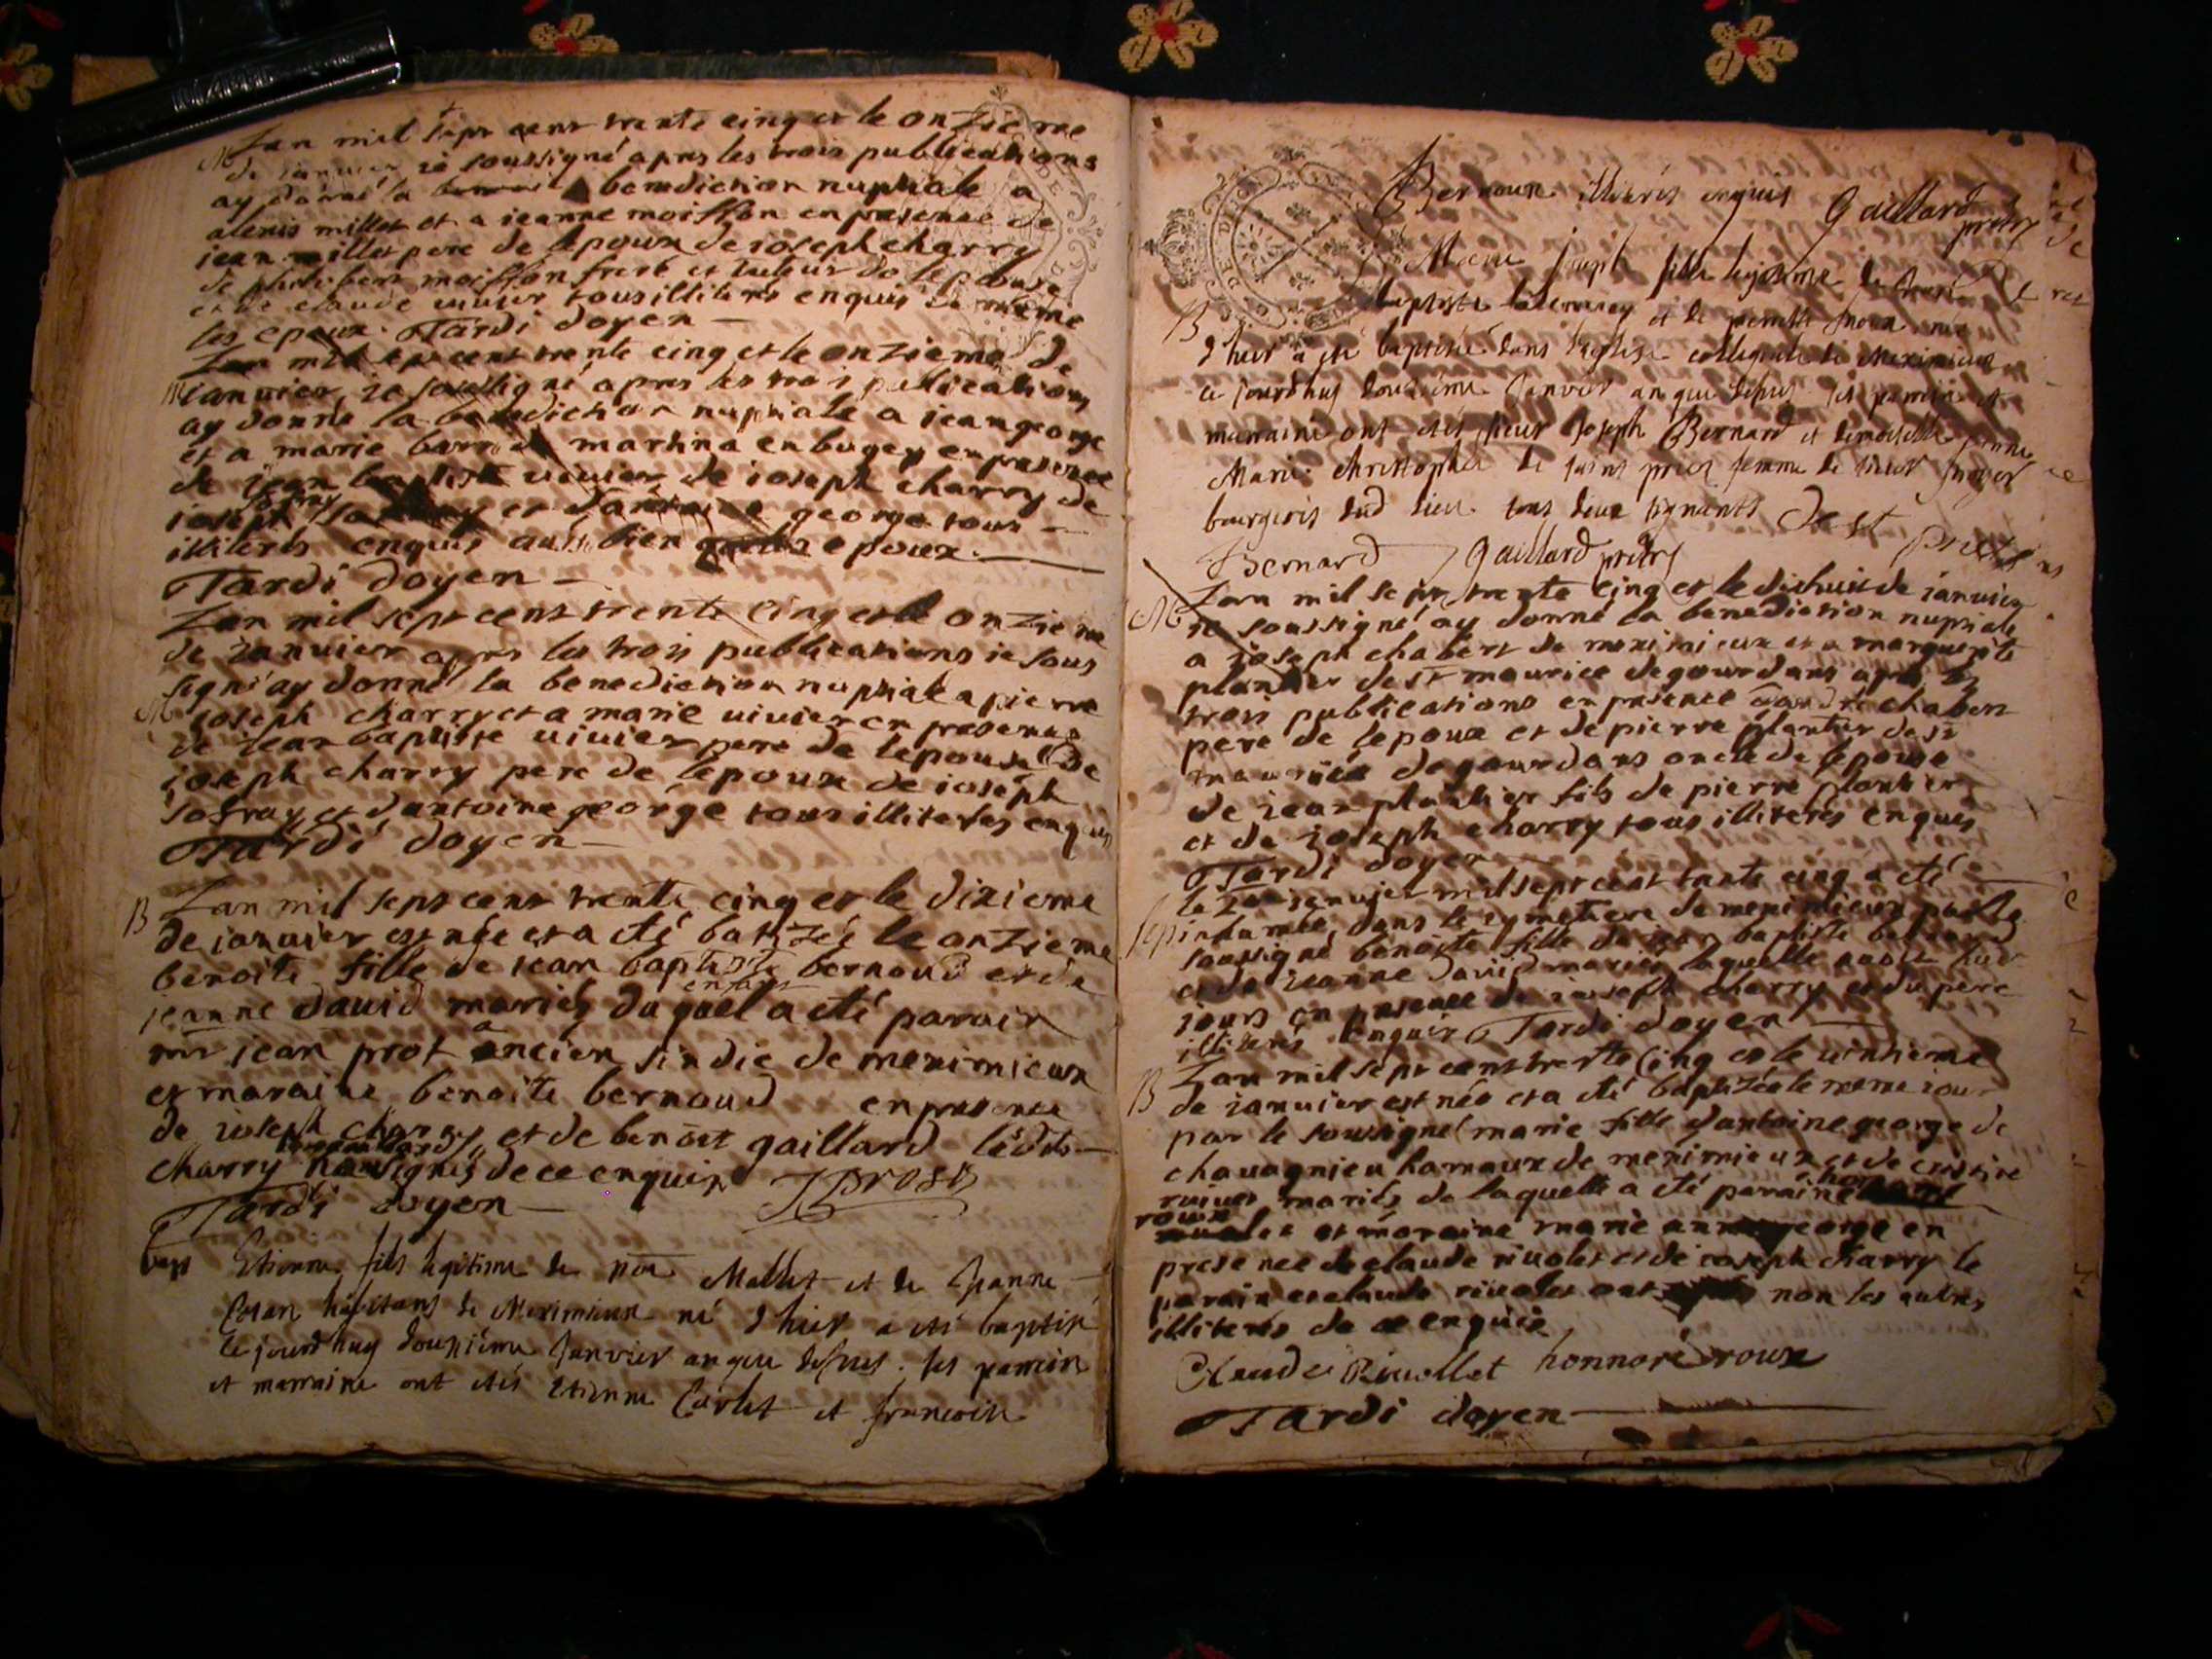 Lan mil sept cent trente cinq et le onzieme
M de ianuier ie soussigné apres les trois publications
ay donné la benediction nuptiale a
alexis millet et a ieanne moisson en presence de
iean millet pere de lepoux de ioseph charry
de philibert moisson frere et tuteur de lepouse
et de claude uiuier tous illiterés enquis de meme
les epoux. Tardi doyen
Lan mil sept cent trente cinq et le onzieme de
M ianuier ie soussigné apres les trois publications
ay donné la benediction nuptiale a iean george
et a marie martina en bugey en presence
de iean baptiste uiuier de ioseph charry de
ioseph sofray et dantoine george tous
illiterés enquis aussi bien epoux.
Tardi doyen
Lan mil sept cent trente cinq et le onzieme
de ianuier apres les trois publications ie sous
signé ay donné la benediction nuptiale a pierre
M ioseph charry et a marie uiuier en presence
de iean baptiste uiuier pere de lepouse de
ioseph charry pere de lepoux de ioseph
sofray et dantoine george tous illiterés enquis
Tardi doyen
B Lan mil sept cent trente cinq et le dixieme
de ianuier est née et a été batizée le onzieme
benoite fille de iean baptiste bernoud et de
enfant
jeanne dauid mariés duquel a été parain
mr iean prost ancien sindic de meximieux
et maraine benoite bernoud en presence
de ioseph charry et de benoit gaillard lédits
charry non signés de ce enquis JProst
Tardi doyen
bapt Etienne fils legitime de Mallet et de Jeanne
habitans de Meximieux né d'hier a été baptisé
ce jourd'huy douzième Janvier an que dessus. ses parrein
et marraine ont étés Etienne Carlet et francoise
Bernoux illiterés enquis Gaillard pretre
Marie Joseph fille legitime de
baptiste et de perrette née
B d'hier a été baptisée dans l'eglise collegiale de Meximieux
ce jourd'huy douzième Janvier an que dessus ses parrein et
marraine ont étés sieur Joseph Bernard et demoiselle
Marie Christophle de saint priez femme de sieur
bourgeois dud lieu tous deux signants De st Priest
Bernard Gaillard pretre
Lan mil sept trente cinq et le dixhuit de ianuier
M ie soussigné ay donné la benediction nuptiale
a ioseph chabert de meximieux et a marguerite
plantier de st maurice de gourdans apres les
trois publications en presence chabert
pere de lepoux et de pierre plantier de st
maurice de gourdans oncle de lepouse
de iean plantier fils de pierre plantier
et de ioseph charry tous illiterés enquis
Tardi doyen
le ianuier mil sept cent trente cinq a été
inhumée dans le cymetiere de meximieux par le
soussigné benoite fille de iean baptiste
et de ieanne dauid mariés laquelle
iours en presence de ioseph charry et du pere
illiterés enquis Tardi doyen
Lan mil sept cent trente cinq et le uintieme
B de ianuier est née et a été baptizée le meme iour
par le soussigné marie fille dantoine george de
chauagnieu hameaux de meximieux et de
mariés de laquelle a été parain honoré
roux
et maraine marie anne george en
presence de claude riuolet et de ioseph charry le
parain et claude riuolet ont non les autres
illiterés de ce enquis
Claude Riuollet honnoré roux
Tardi doyen